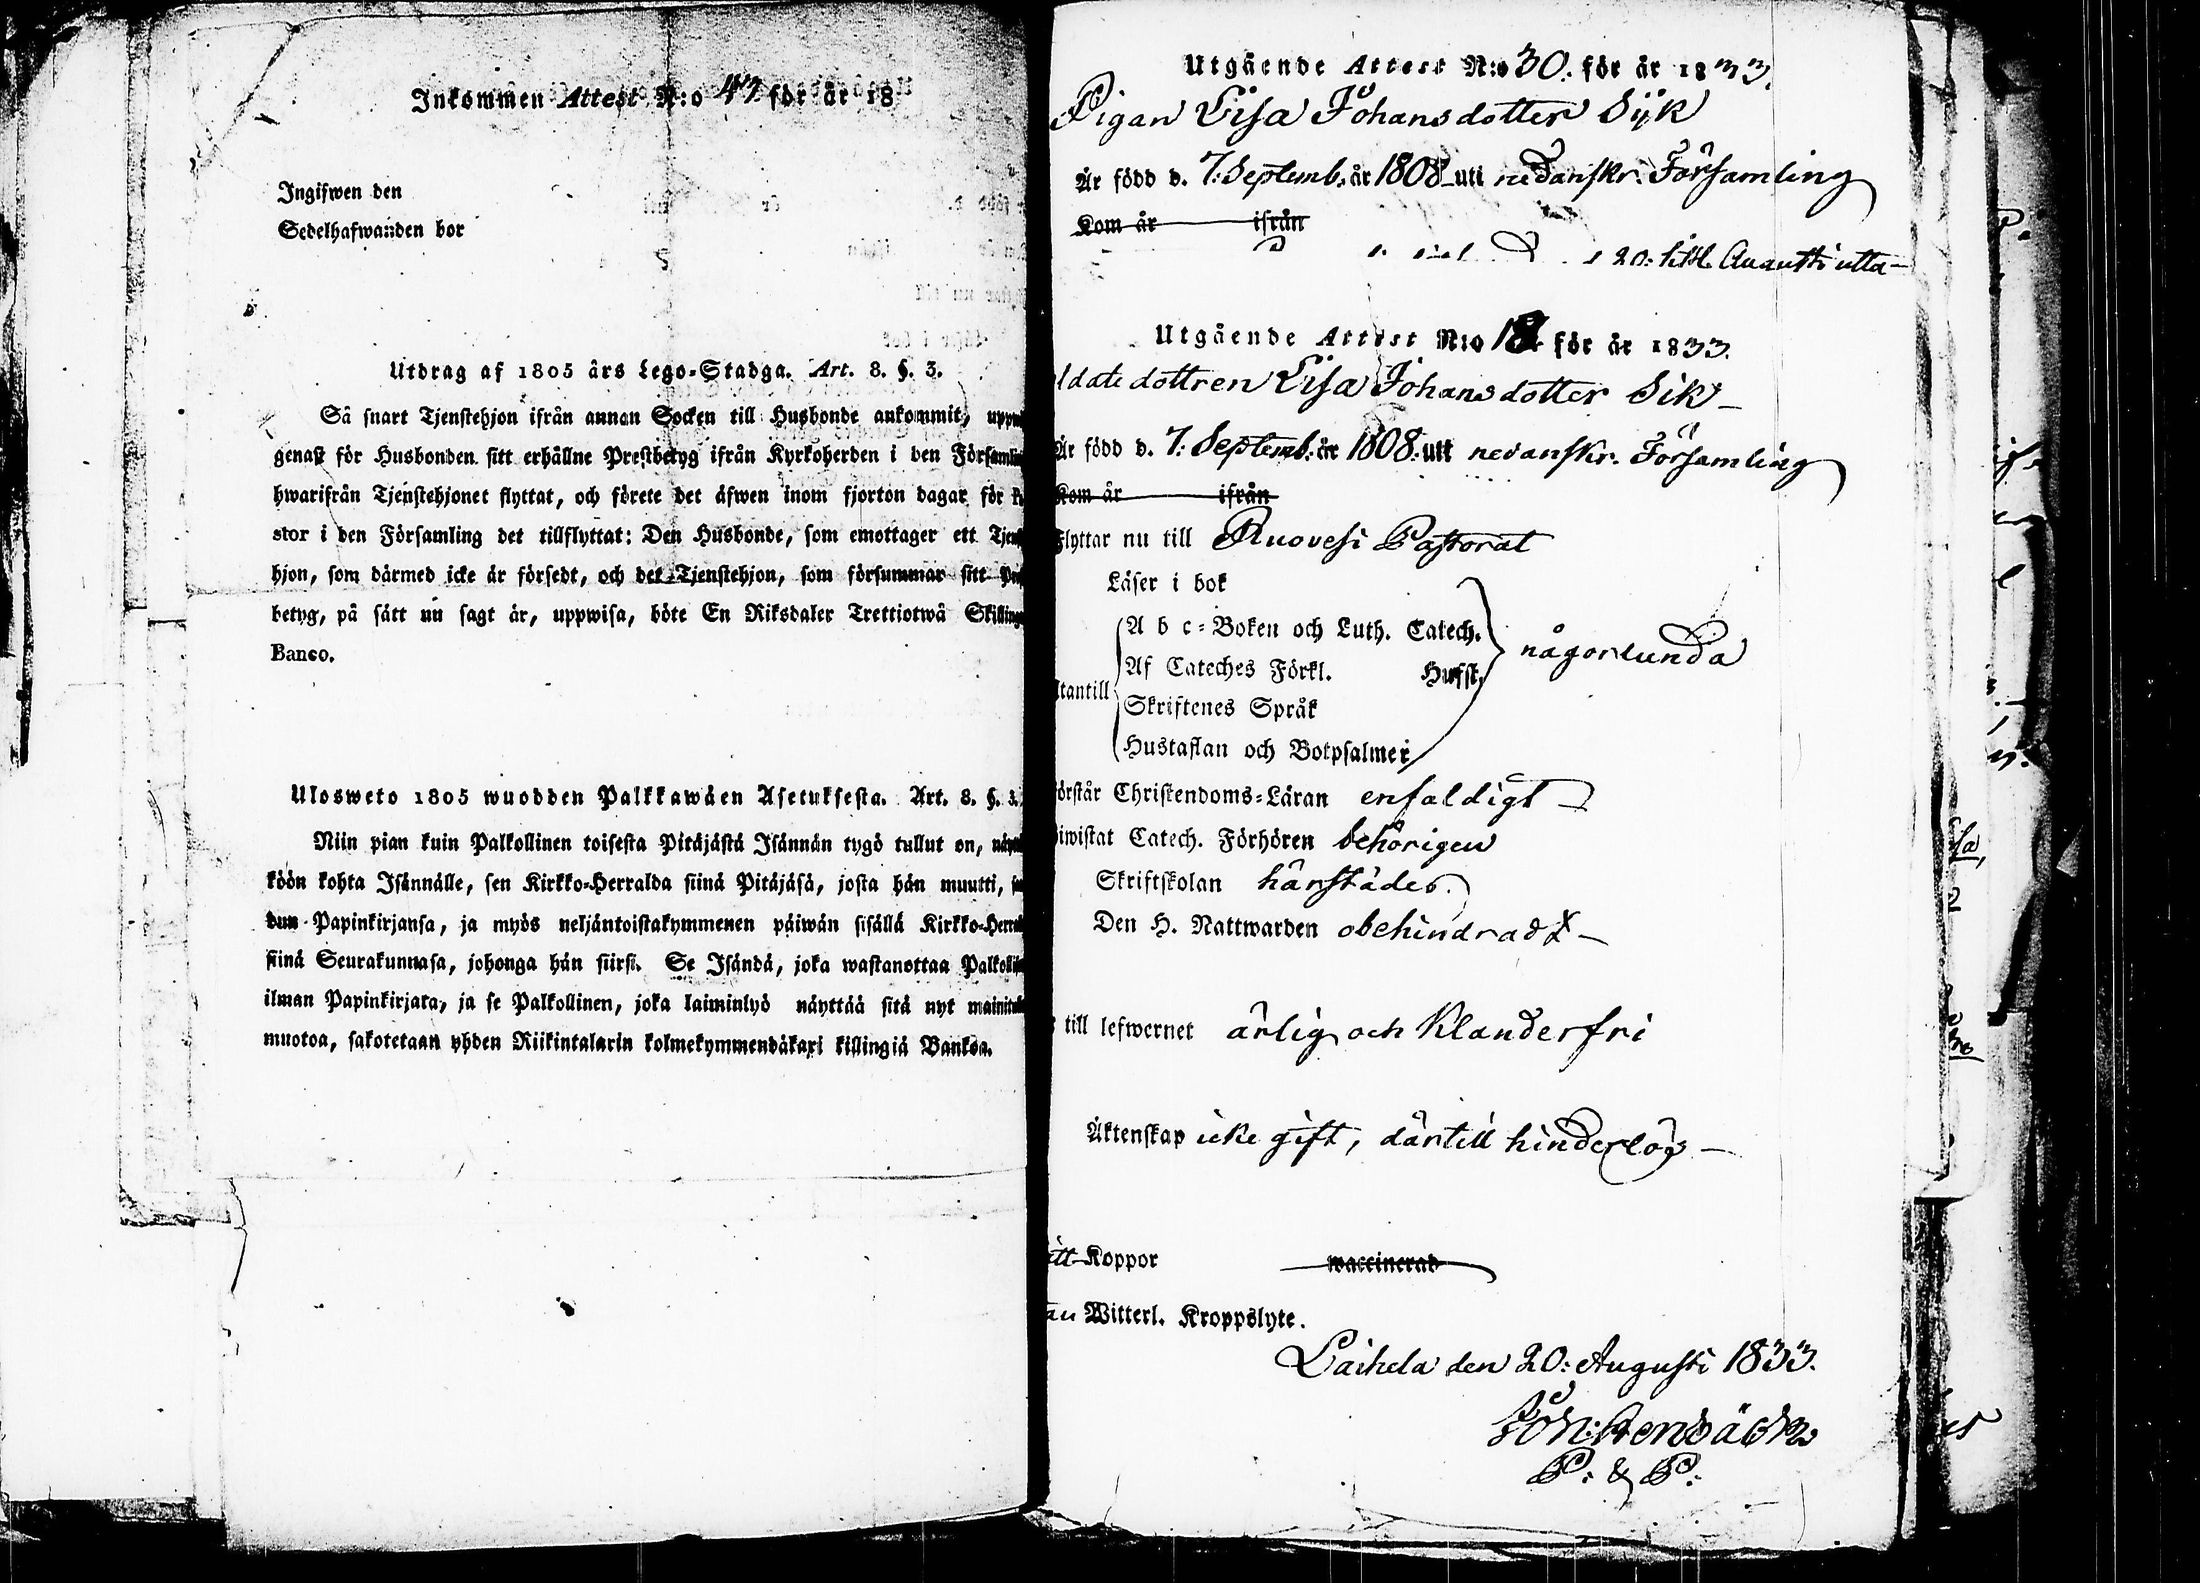 Inkommen Attest N:o 47. för år 18
Ingifwen den
Sedelhafwanden bor
Utdrag af 1805 års Lego-Stadga. Art. 8. §. 3.
Så snart Tjenstehjon ifrån annan Socken till Husbonde ankommit, uppwi
genast för Husbonden sitt erhållne Prestbetyg ifrån Kyrkoherden i den Församlin
hwarifrån Tjenstehjonet flyttat, och förete det äfwen inom fjorton dagar för
stor i den Församling det tillflyttat: Den Husbonde, som emottager ett Tjenst
hjon, som därmed icke är försedt, och det Tjenstehjon, som försummar sitt Pres
betyg, på sätt nu sagt är, uppwisa, böte En Riksdaler Trettiotwå Skilling
Banco.
Ulosweto 1805 wuodden Palkkawäen Asetuksesta. Art. 8. §. 3.
Niin pian kuin Palkollinen toisesta Pitäjästä Isännän tygö tullut on, näyt
köön kohta Isännälle, sen Kirkko-Herralda siinä Pitäjäsä, josta hän muutti, sa
dun Papinkirjansa, ja myös neljäntoistakymmenen päiwän sisällä Kirkko-Herra
siinä Seurakunnasa, johonga hän siirsi. Se Isändä, joka wastanottaa Palkollis
ilman Papinkirjata, ja se Palkollinen, joka laiminlyö näyttää sitä nyt mainitul
muotoa, sakotetaan yhden Riikintalarin kolmekymmendäkaxi killingiä Bankoa.
Utgående Attest N:o 30. för år 1833.
Pigan Lisa Johansdotter Sijk
Är född d. 7. Septemb. år 1808 uti nedanskr. Församling
Kom år ifrån
20: sistl. Augusti utta-
Utgående Attest N:o 18 för år 1833.
ldatedottren Lisa Johansdotter Sik
Är född d. 7. Septemb. år 1808. uti nedanskr. Församling
Kom år ifrån
Flyttar nu till Ruovesi Pastorat
Läser i bok
A b c-Boken och Luth. Catech.
Af Cateches Förkl. Hufst. någorlunda
tantill
Skriftenes Språk
Hustaflan och Botpsalmer
örstår Christendoms-Läran enfaldigt
iwistat Catech. Förhören behörigen
Skriftskolan härstädes.
Den H. Nattwarden obehindradt
till lefwernet ärlig och Klanderfri
Äktenskap icke gift, därtill hinderlös
tt Koppor waccinerad
an Witterl. Kroppslyte.
Laihela den 20: Augusti 1833.
P: & P: